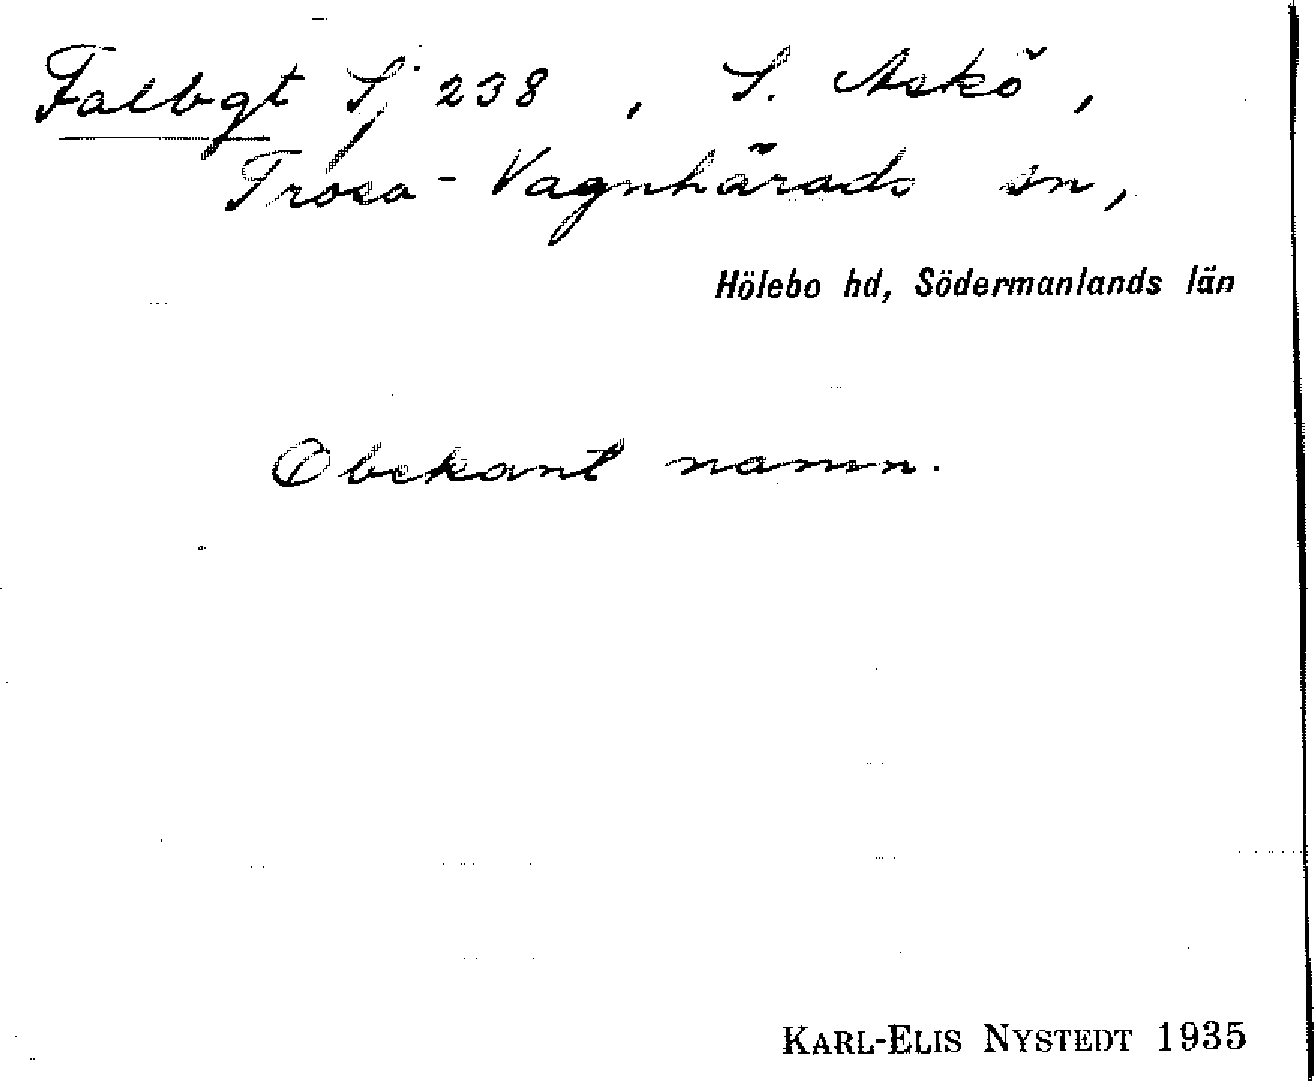 Falbgt Sj 238, S. Askö,
Trosa-Vagnhärads sn,
Hölebo hd, Södermanlands län
Obekant namn.
KARL-ELIS NYSTEDT 1935